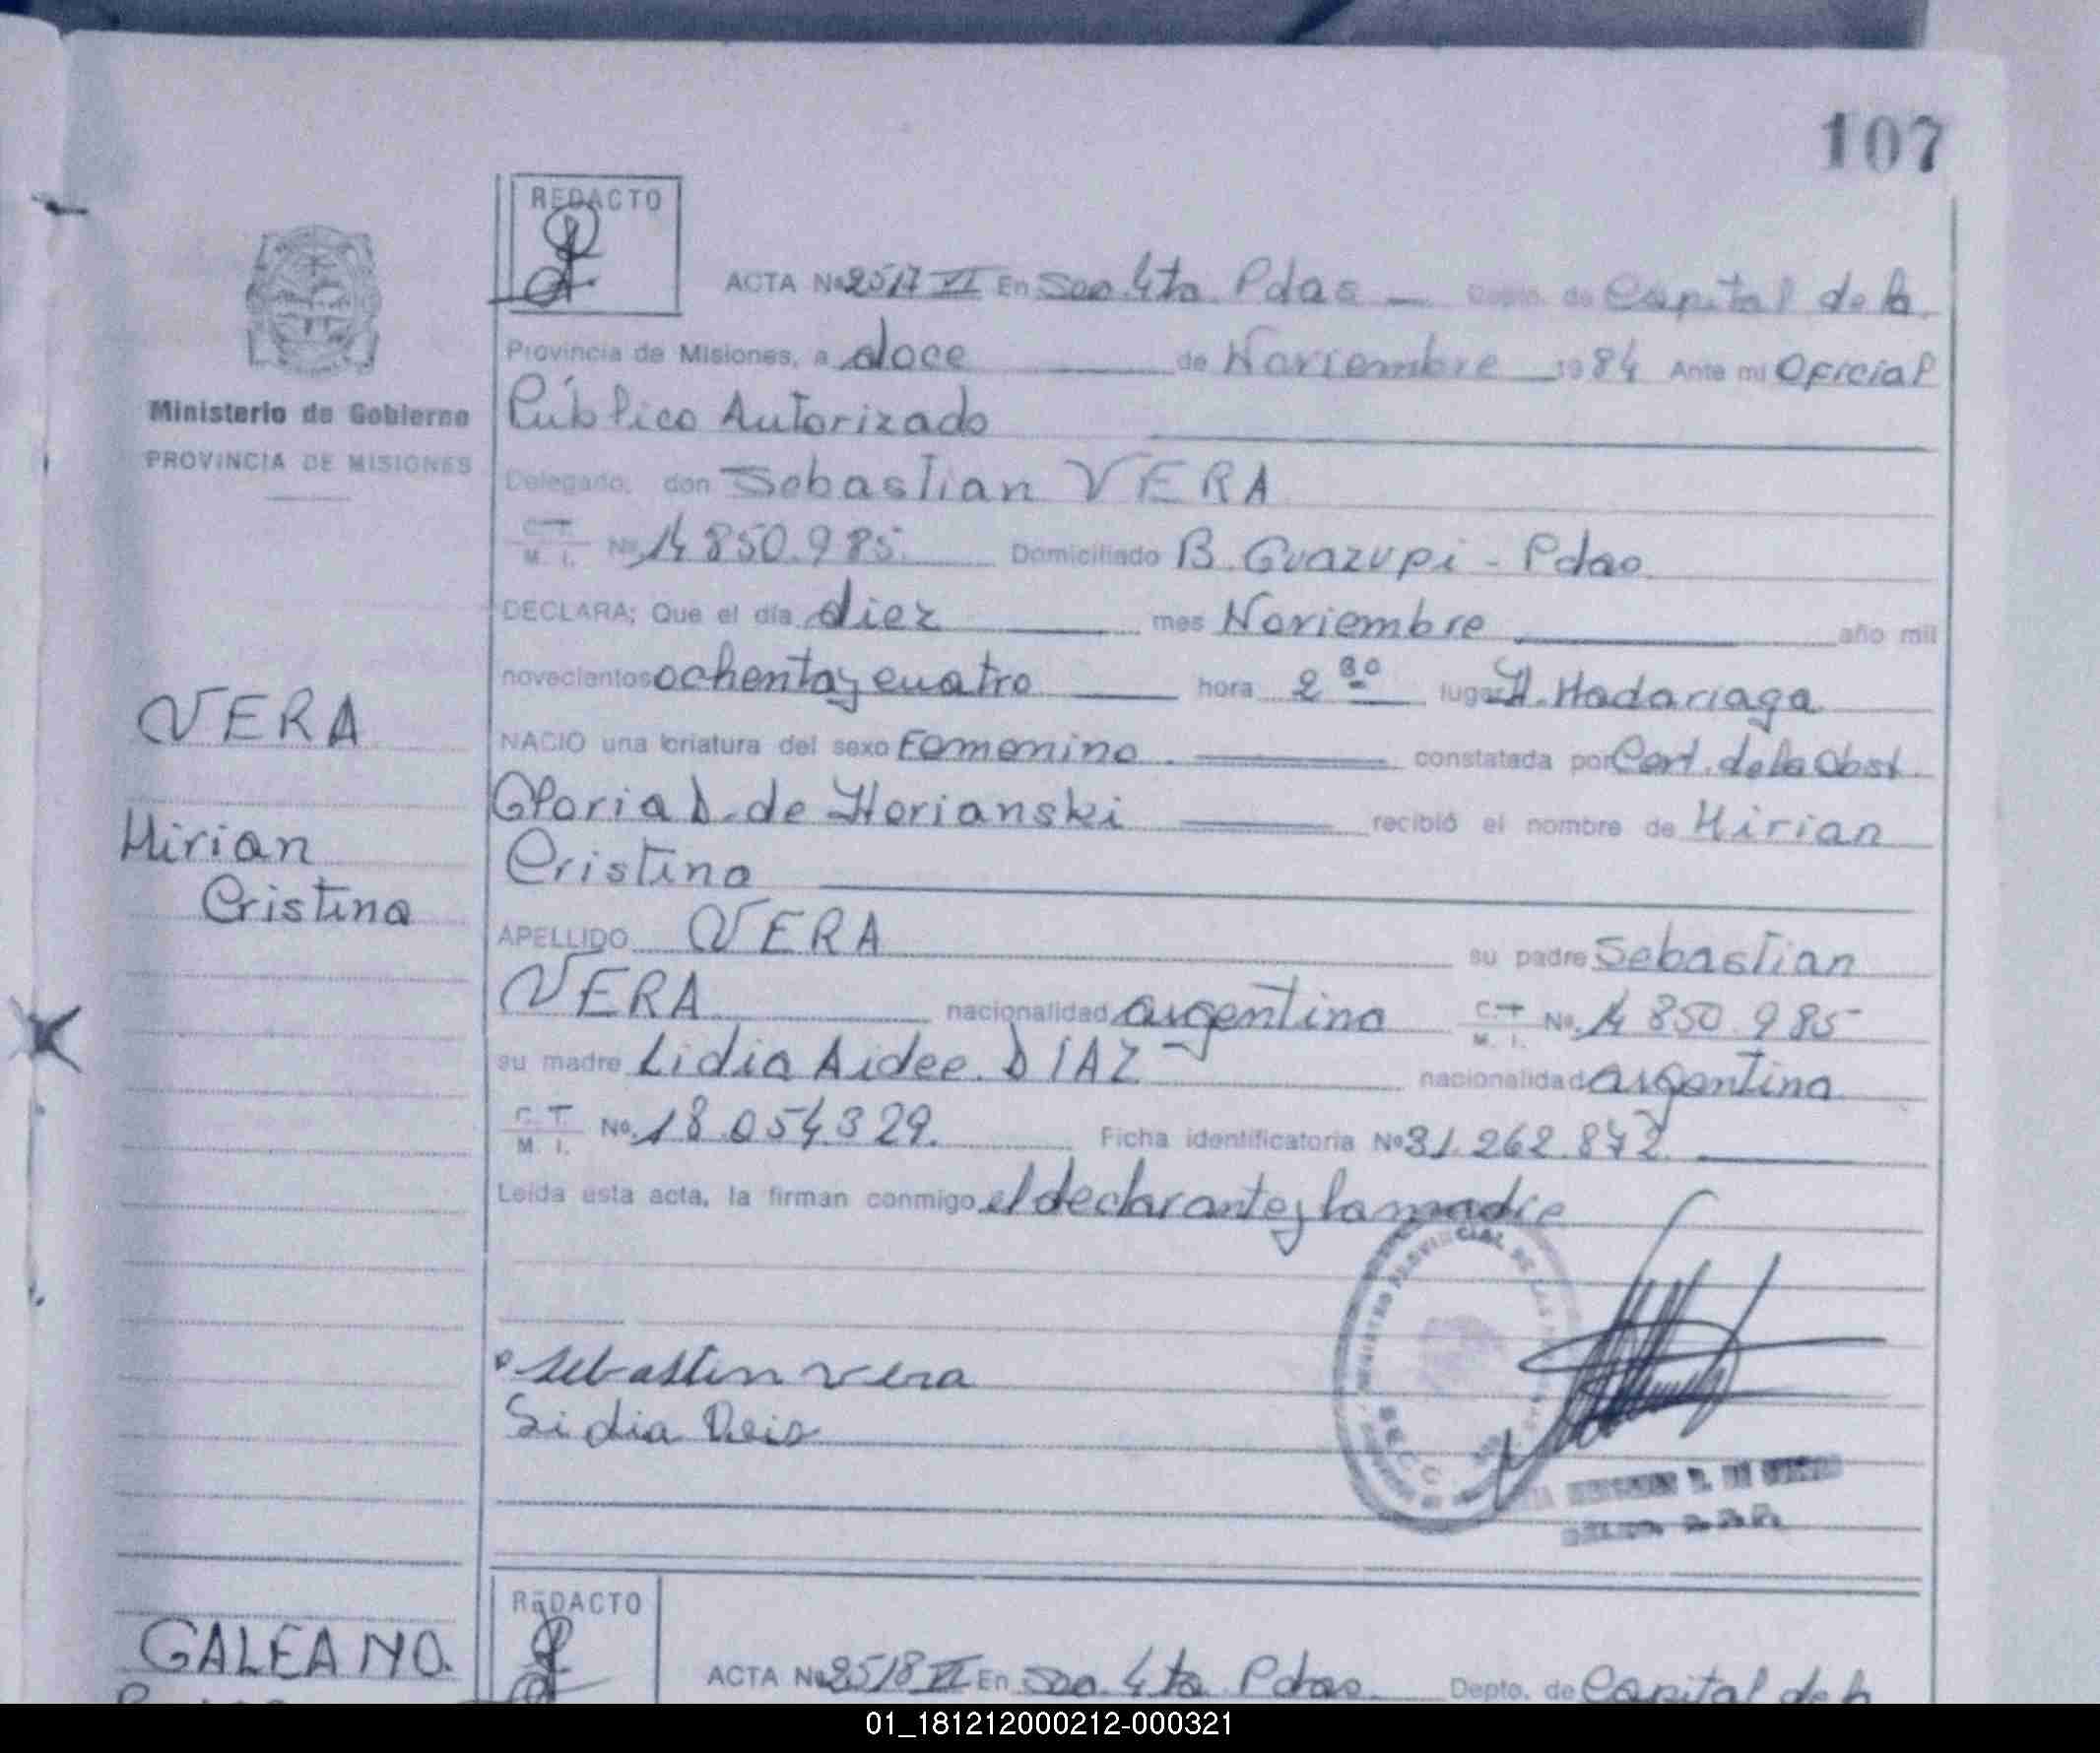 107
REDACTO
ACTA Nº 2517 VI En Secc. 4ta Pdas Depto. de Capital de la
Provincia de Misiones, a doce de Noviembre 1984 Ante mi Oficial
Público Autorizado
Ministerio de Gobierno
PROVINCIA DE MISIONES
Delegado, don Sebastian VERA
C. T. M. I. Nº 14 850.985 Domiciliado B. Guazupi - Pdas
DECLARA; Que el día diez mes Noviembre año mil
novecientos ochenta y cuatro hora 2 30 lugar H. Madariaga
VERA
NACIO una criatura del sexo Femenino constatada por Cert. de la Obst.
Gloria D. de Horianski recibió el nombre de Mirian
Mirian
Cristina
Cristina
APELLIDO VERA su padre Sebastian
VERA nacionalidad argentina C. T. M. I. Nº 14 850 985
su madre Lidia Aidee DIAZ nacionalidad argentina
C. T. M. I. Nº 18.054.329. Ficha identificatoria Nº 31.262.872
Leída esta acta, la firman conmigo el declarante y la madre
REGISTRO PROVINCIAL DE LAS
Sebastian vera
Lidia Deis
REDACTO
GALEANO
ACTA Nº 2518 VI En Secc. 4ta Pdas Depto. de Capital de la
01_181212000212-000321